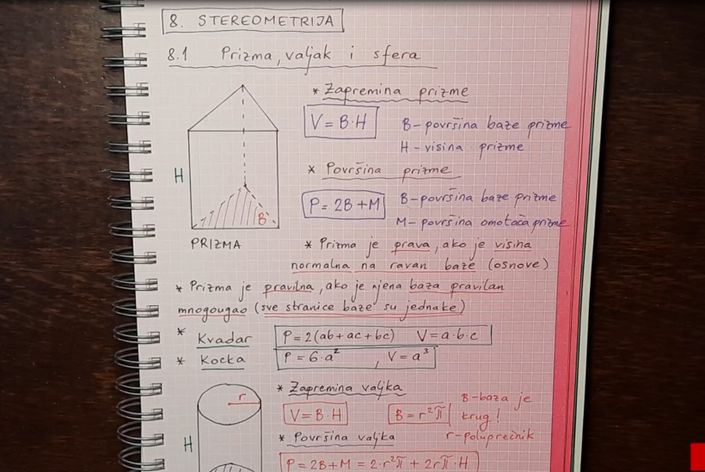 8. STEREOMETRIJA
8.1 Prizma, valjak i sfera
* Zapremina prizme
V = B · H
B - površina baze prizme
H - visina prizme
* Površina prizme
P = 2B + M
B - površina baze prizme
M - površina omotača prizme
H
B
PRIZMA
* Prizma je prava, ako je visina
normalna na ravan baze (osnove)
* Prizma je pravilna, ako je njena baza pravilan
mnogougao (sve stranice baze su jednake)
* Kvadar P = 2(ab + ac + bc) V = a · b · c
* Kocka P = 6 · a² , V = a³
* Zapremina valjka
V = B · H
B = r²π
B - baza je
krug!
r - poluprečnik
r
H
* Površina valjka
P = 2B + M = 2 · r²π + 2rπ · H